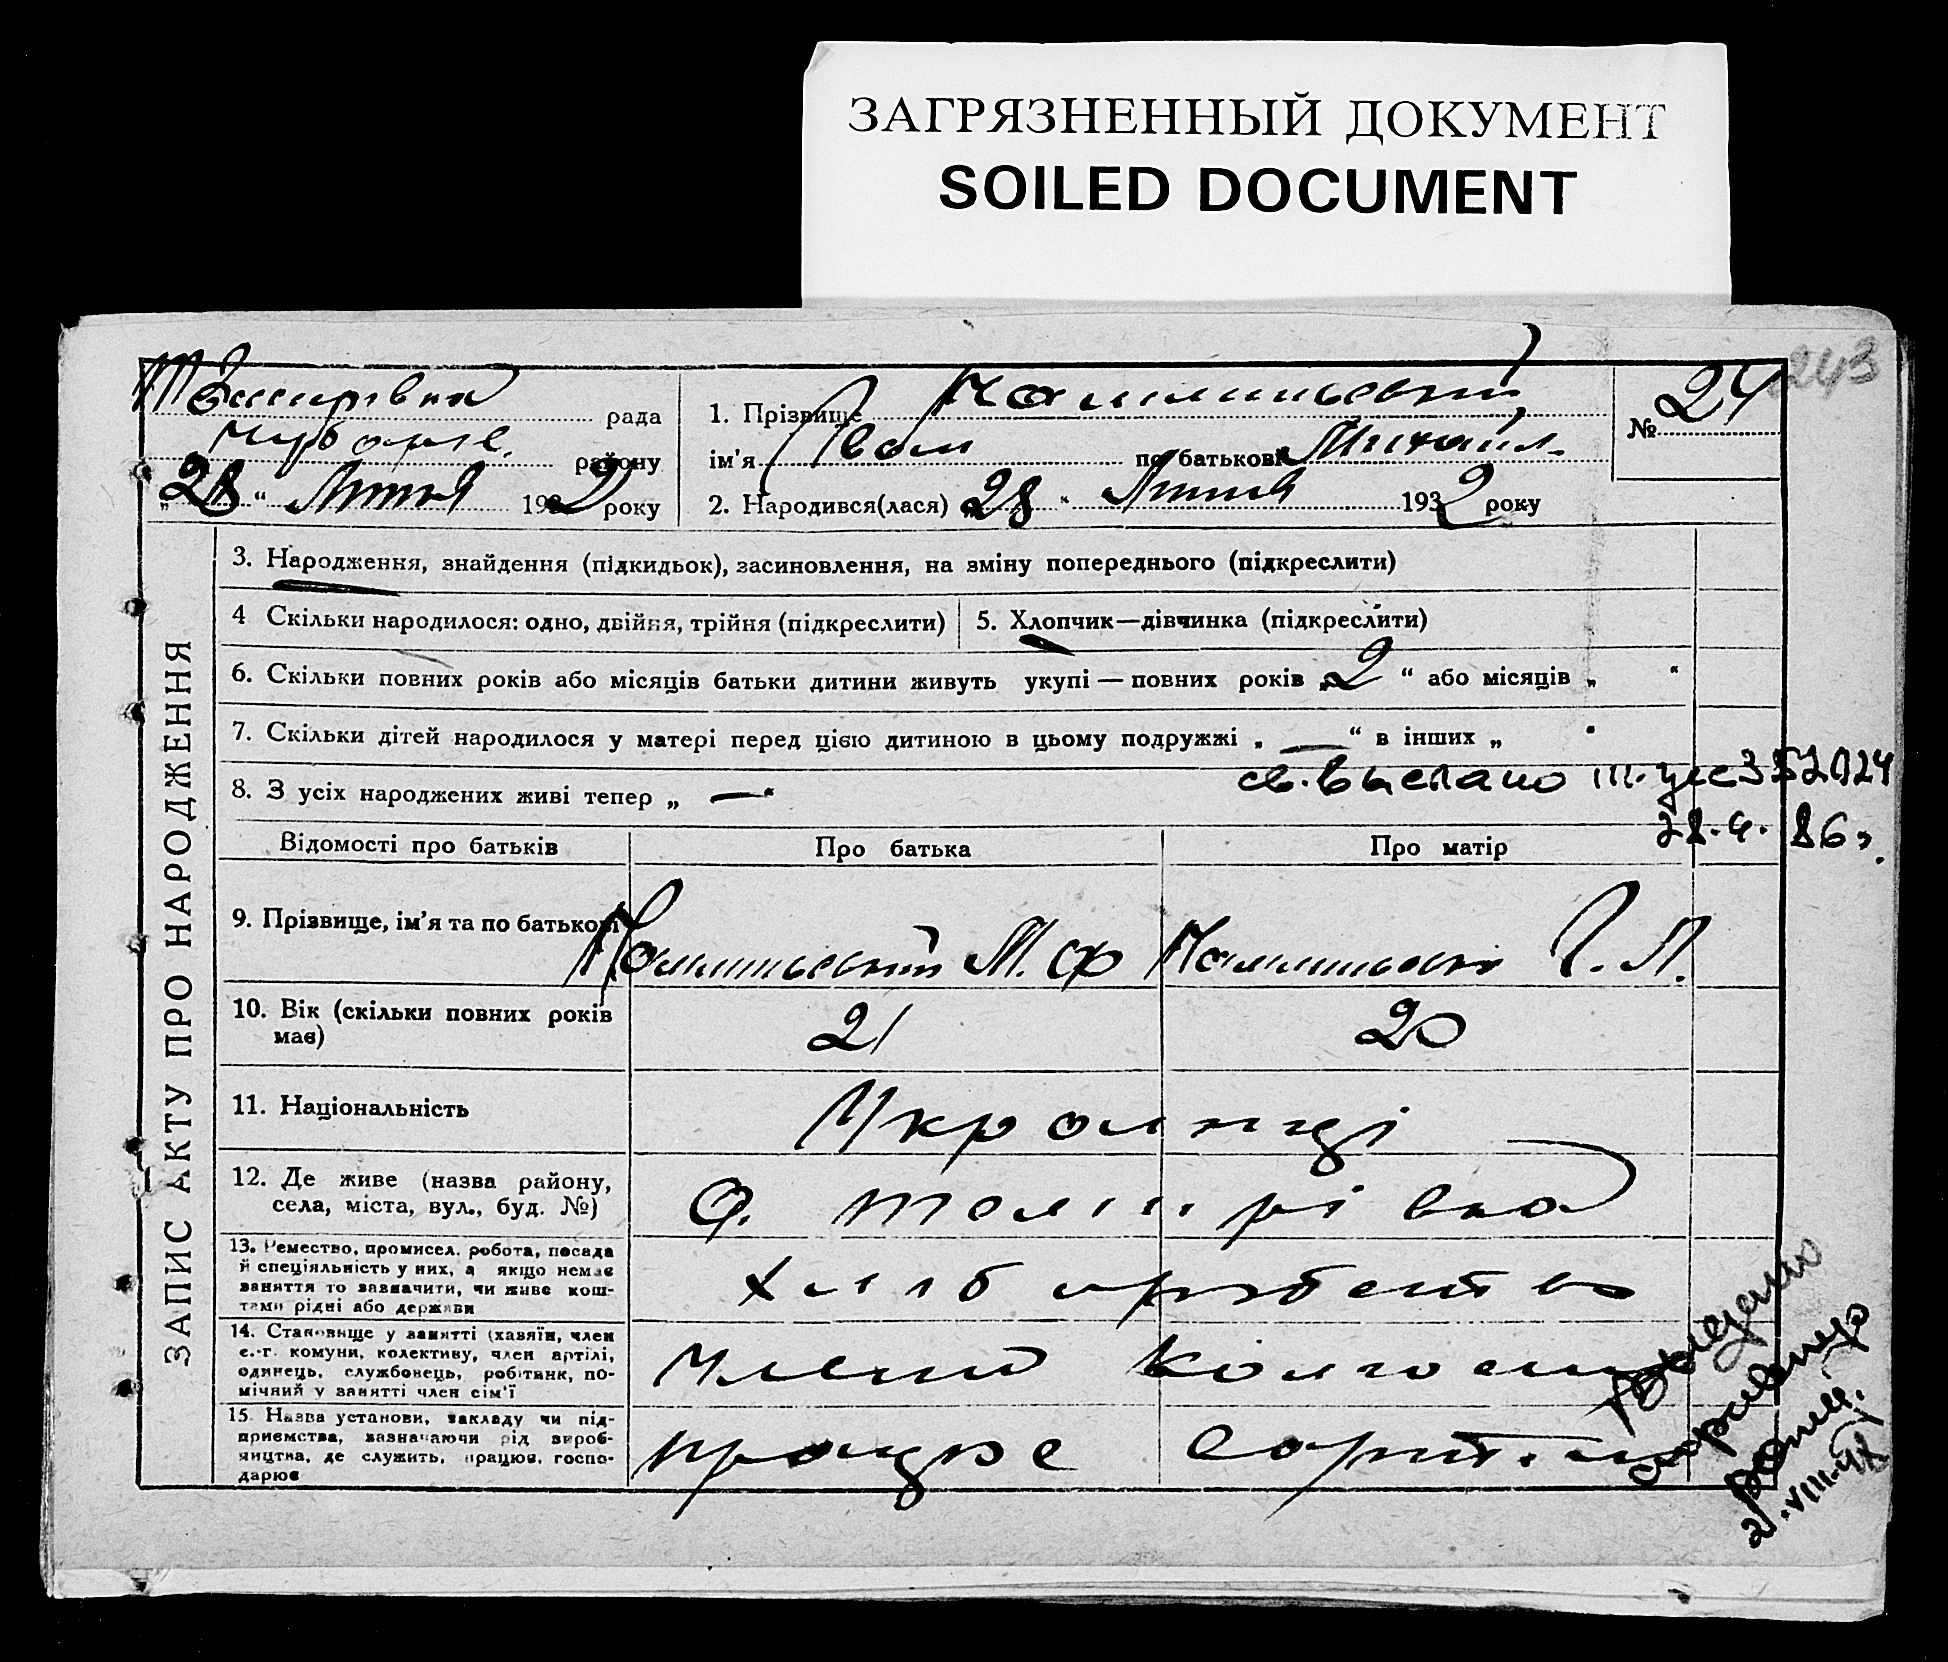 ЗАГРЯЗНЕННЫЙ ДОКУМЕНТ
SOILED DOCUMENT
243
рада
району
„28“ Липня 1932 року
1. Прізвище
ім'я Іван по батькові Михайл.
2. Народився(лася) „28“ Липня 1932 року
№ 24
ЗАПИС АКТУ ПРО НАРОДЖЕННЯ
3. Народження, знайдення (підкидьок), засиновлення, на зміну попереднього (підкреслити)
4 Скільки народилося: одно, двійня, трійня (підкреслити)
5. Хлопчик—дівчинка (підкреслити)
6. Скільки повних років або місяців батьки дитини живуть укупі — повних років „2“ або місяців „ “
7. Скільки дітей народилося у матері перед цією дитиною в цьому подружжі „ — “ в інших „ “
8. З усіх народжених живі тепер „ — “
св. выслано
28.4.86г.
Відомості про батьків
Про батька
Про матір
9. Прізвище, ім'я та по батькові
М. Ф
10. Вік (скільки повних років має)
21
20
11. Національність
Українці
12. Де живе (назва району,
села, міста, вул., буд. №)
13. Ремество, промисел, робота, посада
й спеціяльність у них, а якщо немає
заняття то зазначити, чи живе кош-
тами рідні або держави
Хліборобство
14. Становище у занятті (хазяїн, член
с.-г. комуни, колективу, член артілі,
одинець, службовець, робітник, по-
мічний у занятті член сім'ї
Члени колгоспу
15. Назва установи, закладу чи під-
приємства, зазначаючи рід вироб-
ництва, де служить, працює, госпо-
дарює
працює
Выдано